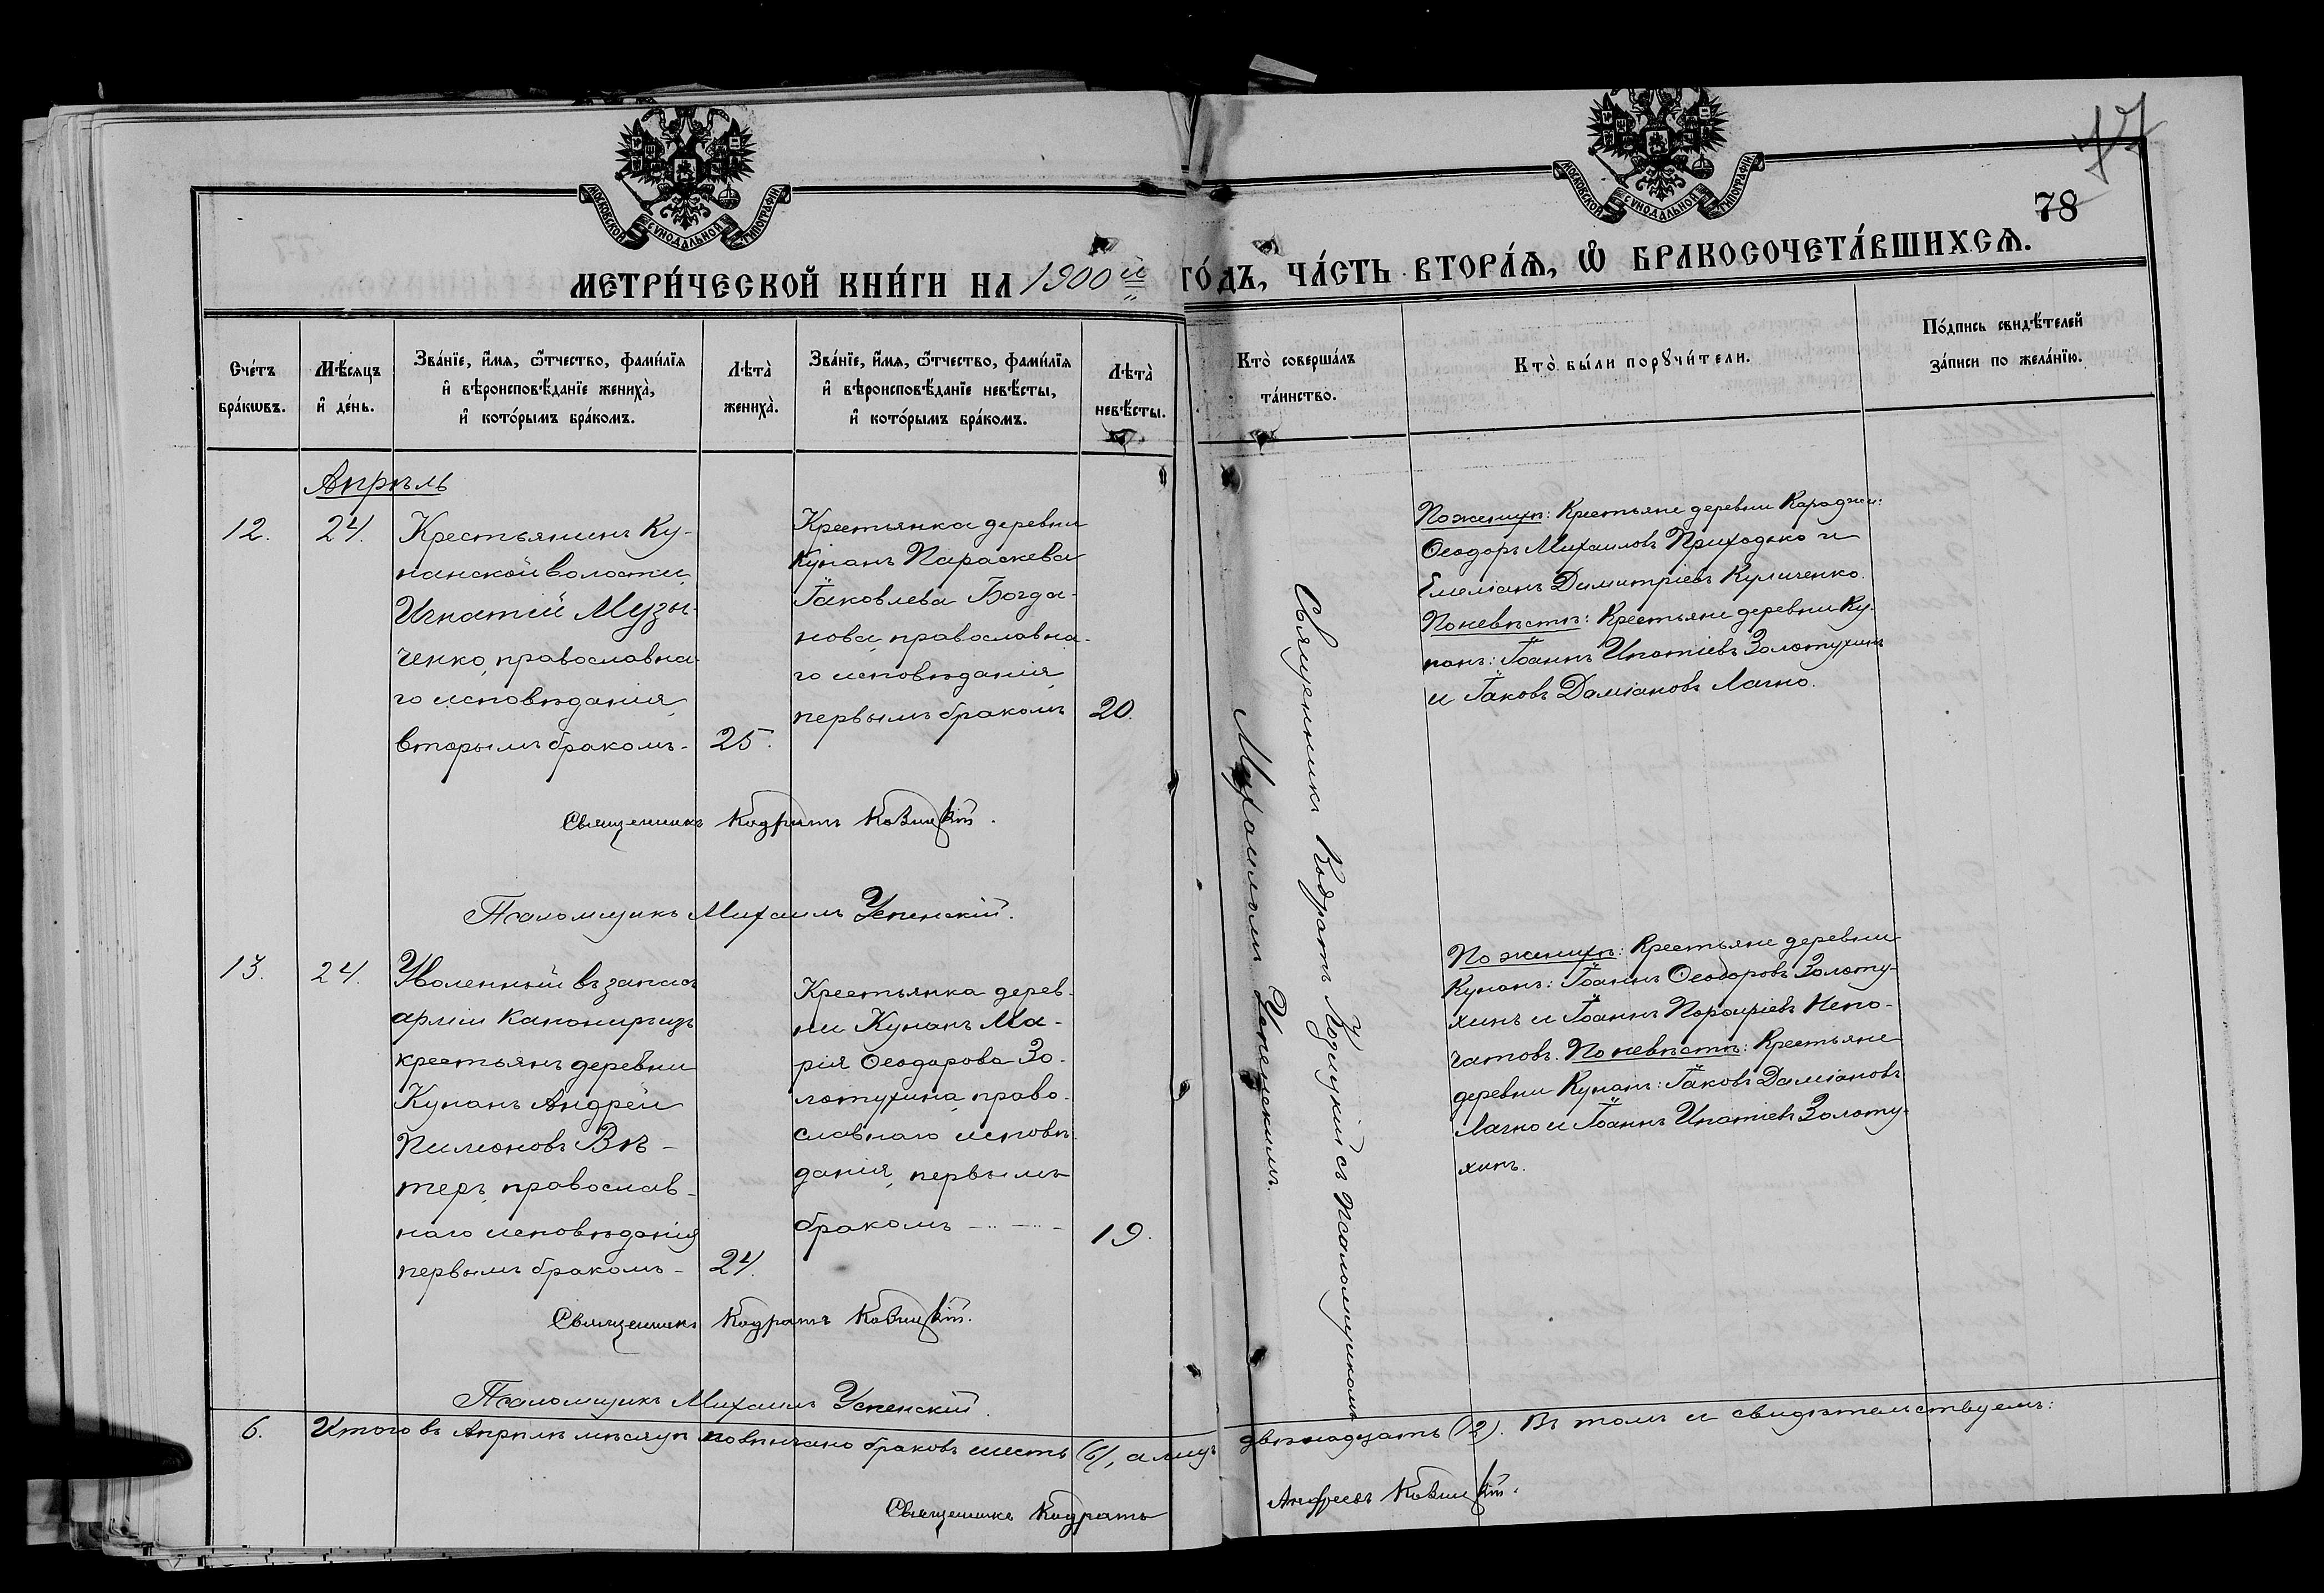 МОСКОВСКОЙ СѴНОДАЛЬНОЙ ТИПОГРАФІИ
МОСКОВСКОЙ СѴНОДАЛЬНОЙ ТИПОГРАФІИ
77
78
МЕТРИ́ЧЕСКОЙ КНИ́ГИ НА 1900й ГО́ДЪ, ЧА́СТЬ ВТОРА́Ѧ, Ѡ҆ БРАКОСОЧЕТА́ВШИХСѦ.
Сче́тъ
бра́кѡвъ.
Мѣ́сяцъ
и҆ де́нь.
Зва́нїе, и҆́мя, ѻ҆́тчество, фами́лїя
и҆ вѣроисповѣ́данїе жениха̀,
и҆ кото́рымъ бра́комъ.
Лѣта̀
жениха̀.
Зва́нїе, и҆́мя, ѻ҆́тчество, фами́лїя
и҆ вѣроисповѣ́данїе невѣ́сты,
и҆ кото́рымъ бра́комъ.
Лѣта̀
невѣ́сты.
Кто̀ соверша́лъ
та́инство.
Кто̀ бы́ли порꙋчи́тели.
По́дпись свидѣ́телей
за́писи по жела́нїю.
Апрѣль
12.
24.
Крестьянинъ Ку-
нанской волости,
Игнатій Музы-
ченко, православна-
го исповѣданія,
вторымъ бракомъ-
25.
Крестьянка деревни
Кунанъ Параскева
Іаковлева Богда-
нова, православна-
го исповѣданія,
первымъ бракомъ
20.
Священникъ Кодратъ Козицкій съ псаломщикомъ
Михаиломъ Успенскимъ.
По женихѣ: Крестьяне деревни Караджи:
Ѳеодоръ Михаиловъ Приходько и
Емеліанъ Димитріевъ Куличенко.
По невѣстѣ: Крестьяне деревни Ку-
нанъ: Іоаннъ Ипатіевъ Золотухинъ
и Іаковъ Даміановъ Лачно.
Священникъ Кодратъ Козицкій.
Псаломщикъ Михаилъ Успенскій.
13.
24.
Уволенный въ запасъ
арміи Канониръ изъ
крестьянъ деревни
Кунанъ Андрей
Пимоновъ Вѣ-
теръ, православ-
наго исповѣданія
первымъ бракомъ-
24.
Крестьянка дерев-
ни Кунанъ Ма-
рія Ѳеодорова Зо-
лотухина, право-
славнаго исповѣ-
данія, первымъ
бракомъ
19.
По женихѣ: Крестьяне деревни
Кунанъ: Іоаннъ Ѳеодоровъ Золоту-
хинъ и Іоаннъ Порфиріевъ Непо-
чатовъ. По невѣстѣ: Крестьяне
деревни Кунанъ: Іаковъ Даміановъ
Лачно и Іоаннъ Ипатіевъ Золоту-
хинъ.
Священникъ Кодратъ Козицкій.
Псаломщикъ Михаилъ Успенскій.
6. Итого въ Апрѣлѣ мѣсяцѣ повѣнчано браковъ шесть (6), а лицъ двѣнадцать (12). Въ томъ и свидѣтельствуемъ:
Священникъ Кодратъ Андреевъ Козицкій.